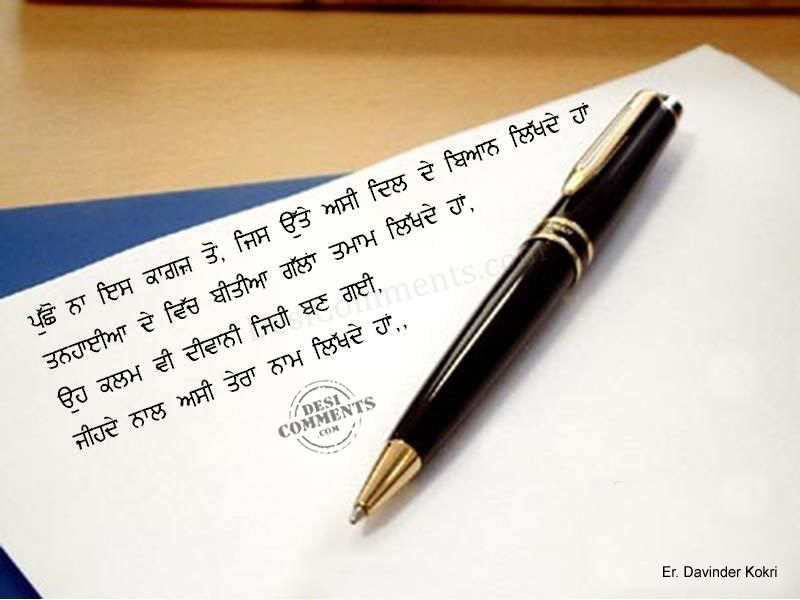 ਪੁੱਛੋ ਨਾ ਇਸ ਕਾਗਜ਼ ਤੋਂ, ਜਿਸ ਉੱਤੇ ਅਸੀ ਦਿਲ ਦੇ ਬਿਆਨ ਲਿੱਖਦੇ ਹਾਂ
ਤਨਹਾਈਆ ਦੇ ਵਿੱਚ ਬੀਤੀਆ ਗੱਲਾਂ ਤਮਾਮ ਲਿੱਖਦੇ ਹਾਂ,
ਉਹ ਕਲਮ ਵੀ ਦੀਵਾਨੀ ਜਿਹੀ ਬਣ ਗਈ,
ਜੀਹਦੇ ਨਾਲ ਅਸੀ ਤੇਰਾ ਨਾਮ ਲਿੱਖਦੇ ਹਾਂ,,
DESI
COMMENTS
.COM
Er. Davinder Kokri